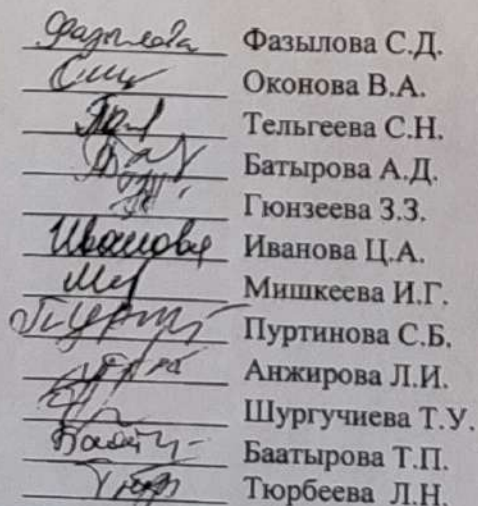 Фазылова Фазылова С.Д.
Оконова В.А.
Тельгеева С.Н.
Батырова А.Д.
Гюнзеева З.З.
Иванова Иванова Ц.А.
Мишкеева И.Г.
Пуртинова С.Б.
Анжирова Л.И.
Шургучиева Т.У.
Баатырова Т.П.
Тюрбеева Л.Н.